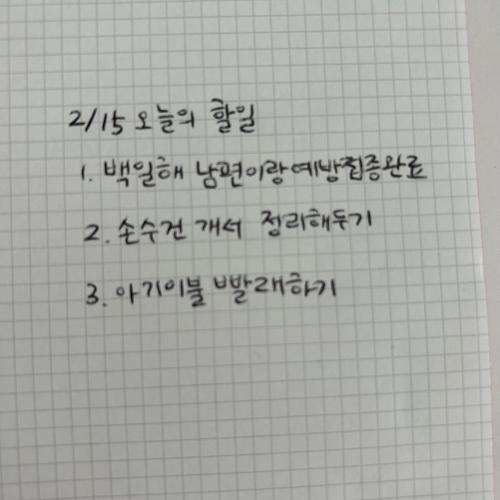 2/15 오늘의 할일
1. 백일해 남편이랑 예방접종완료
2. 손수건 개서 정리해두기
3. 아기이불 빨래하기